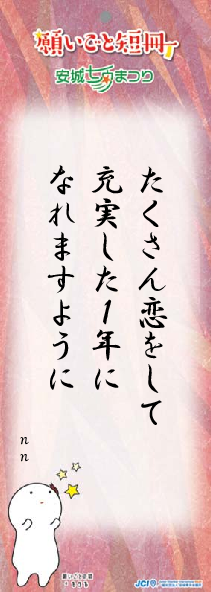 願いごと短冊
安城七夕まつり
たくさん恋をして
充実した1年に
なれますように
nn
願いごと広場
JCI